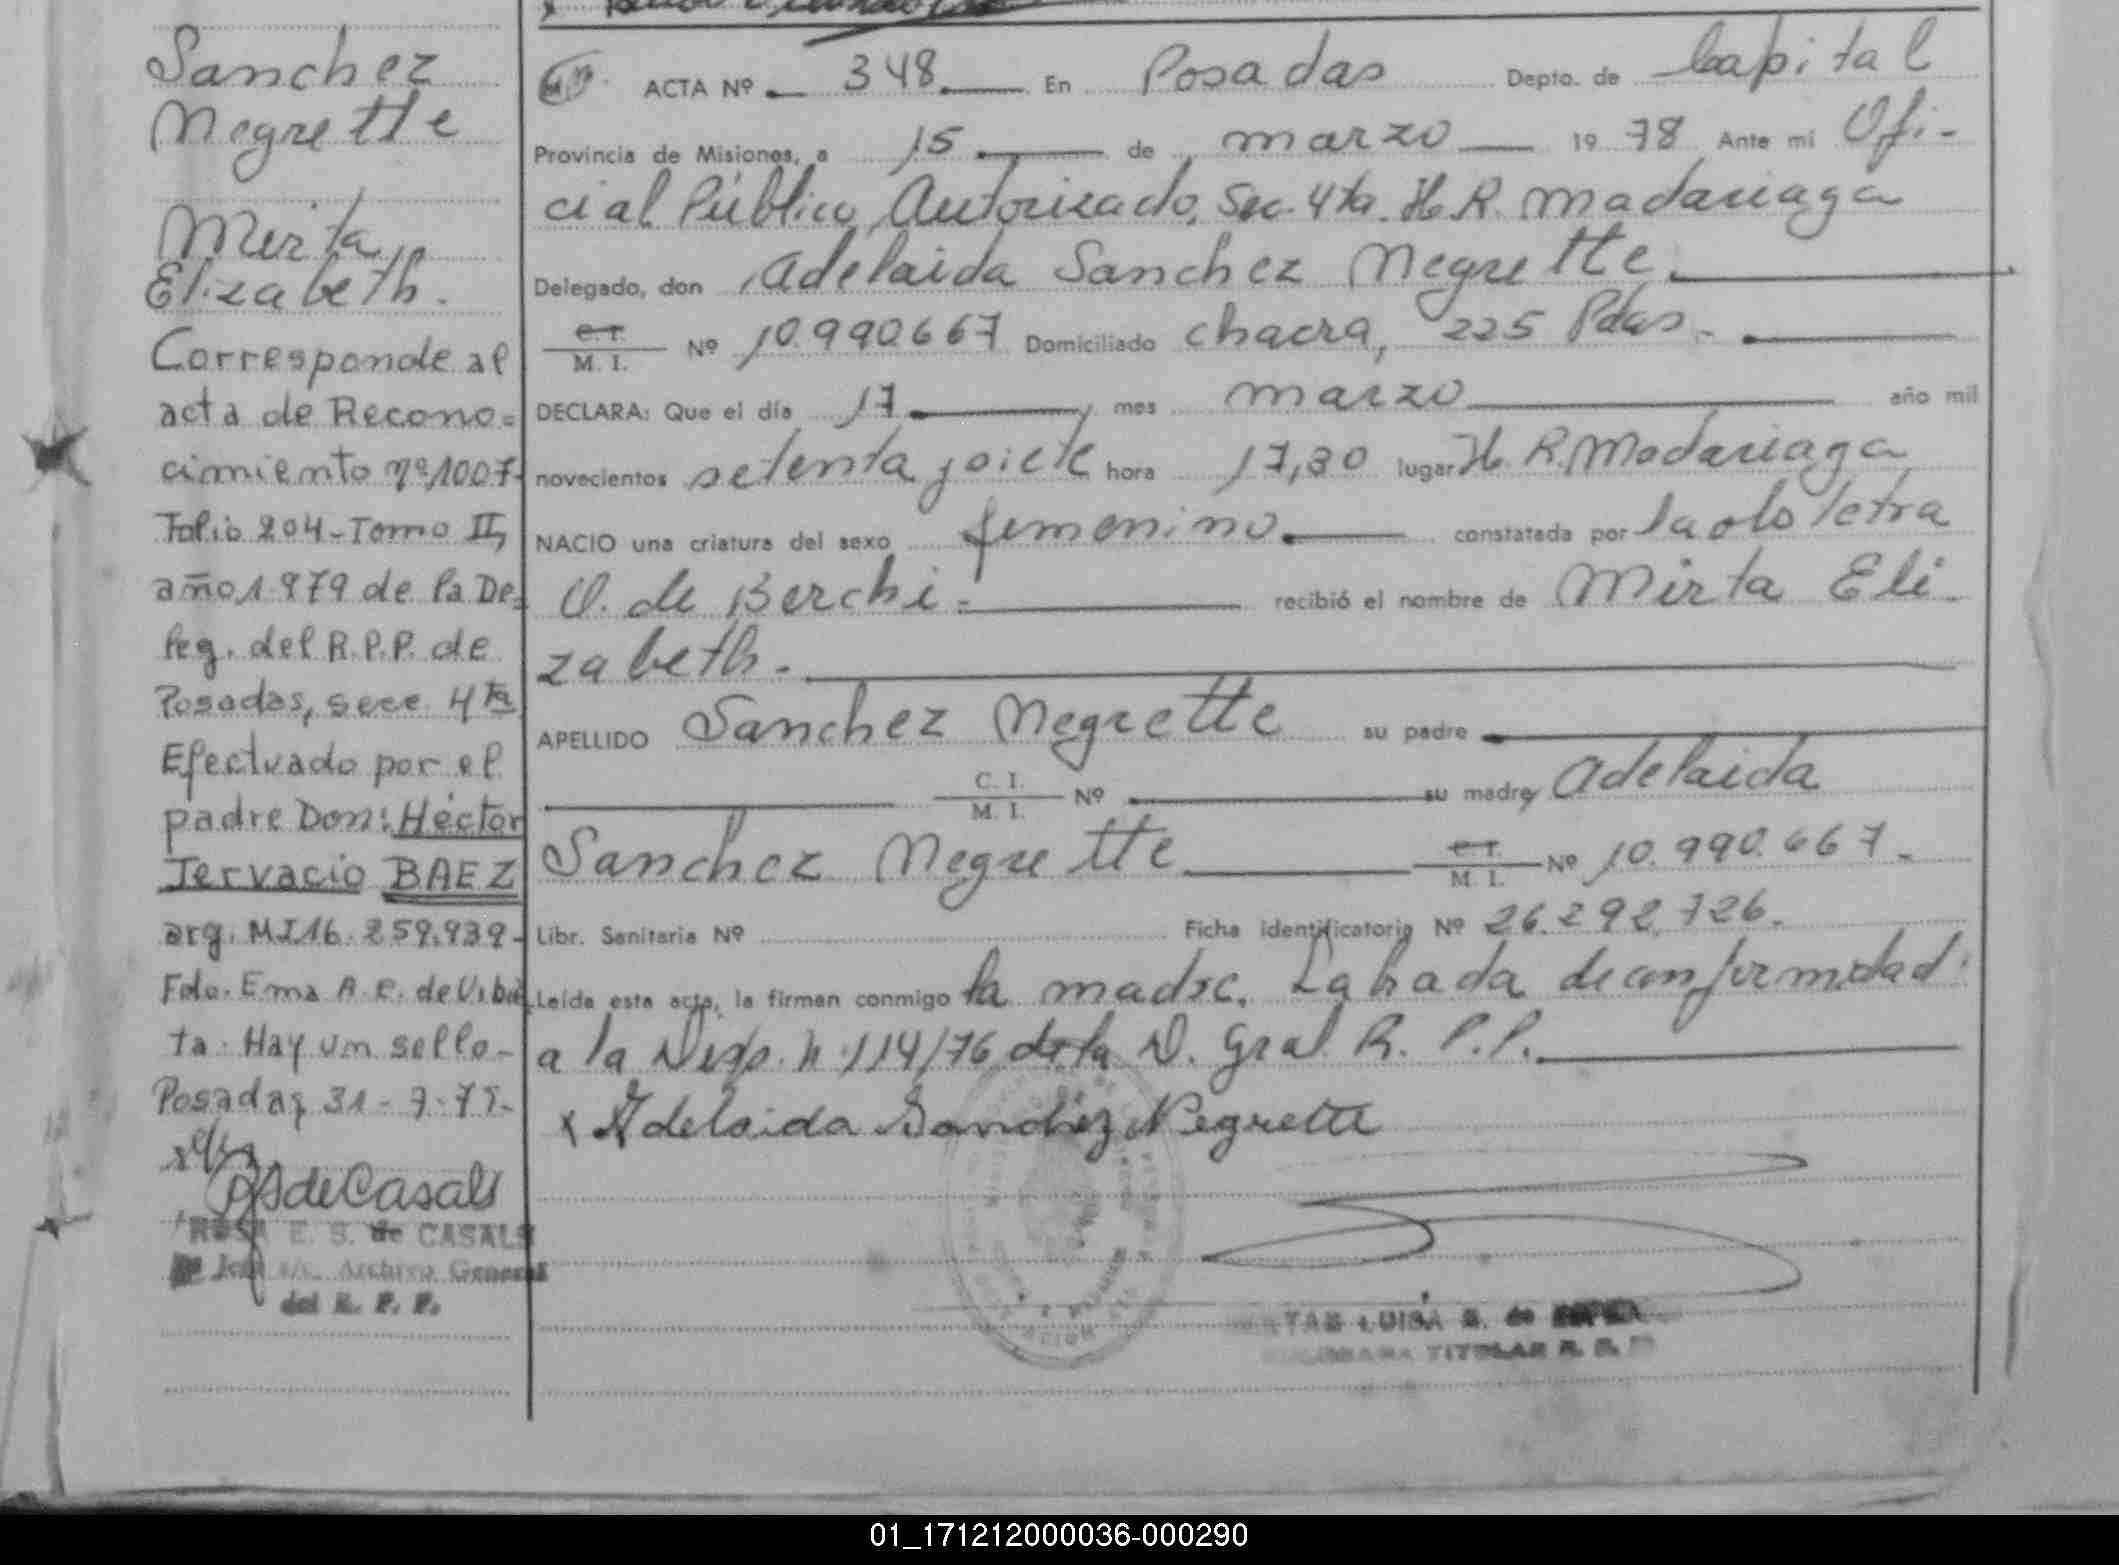 Sanchez
Negrette
Mirta
Elizabeth.
Corresponde al
acta de Recono=
cimiento nº 1007-
Folio 204-Tomo II,
año 1.979 de la De=
leg. del R.P.P. de
Posadas, secc. 4ta
Efectuado por el
padre Don: Héctor
Jervacio BAEZ
arg. MI 16.259.939-
Fdo. Ema A. C. de Urbie
ta. Hay un sello-
Posadas, 31-7-79.-
RSdeCasals
ROSA E. S. de CASALS
Jefa a/c. Archivo General
del R. P. P.
ACTA Nº 348 En Posadas Depto. de Capital
Provincia de Misiones, a 15 de marzo 19 78 Ante mi Ofi-
cial Público, Autorizado, Sec. 4ta. H. R. Madariaga
Delegado, don Adelaida Sanchez Negrette.
C.I.
M. I. Nº 10.990.667 Domiciliado chacra, 225 Pdas.-
DECLARA: Que el día 17, mes marzo año mil
novecientos setenta y siete hora 17,30 lugar H. R. Madariaga
NACIO una criatura del sexo femenino. constatada por la obstetra
O. de Berchi.- recibió el nombre de Mirta Eli-
zabeth.-
APELLIDO Sanchez Negrette su padre
C. I.
M. I. Nº su madre, Adelaida
Sanchez Negrette C.I.
M. I. Nº 10.990.667.-
Libr. Sanitaria Nº Ficha identificatoria Nº 26.292.726.
Leída esta acta, la firman conmigo la madre. Labrada de conformidad
a la Disp. n. 114/76 de la D. Gral. R. P. P.
x Adelaida Sanchez Negrette
LUISA S. de
TITULAR R. P. P.
01_171212000036-000290